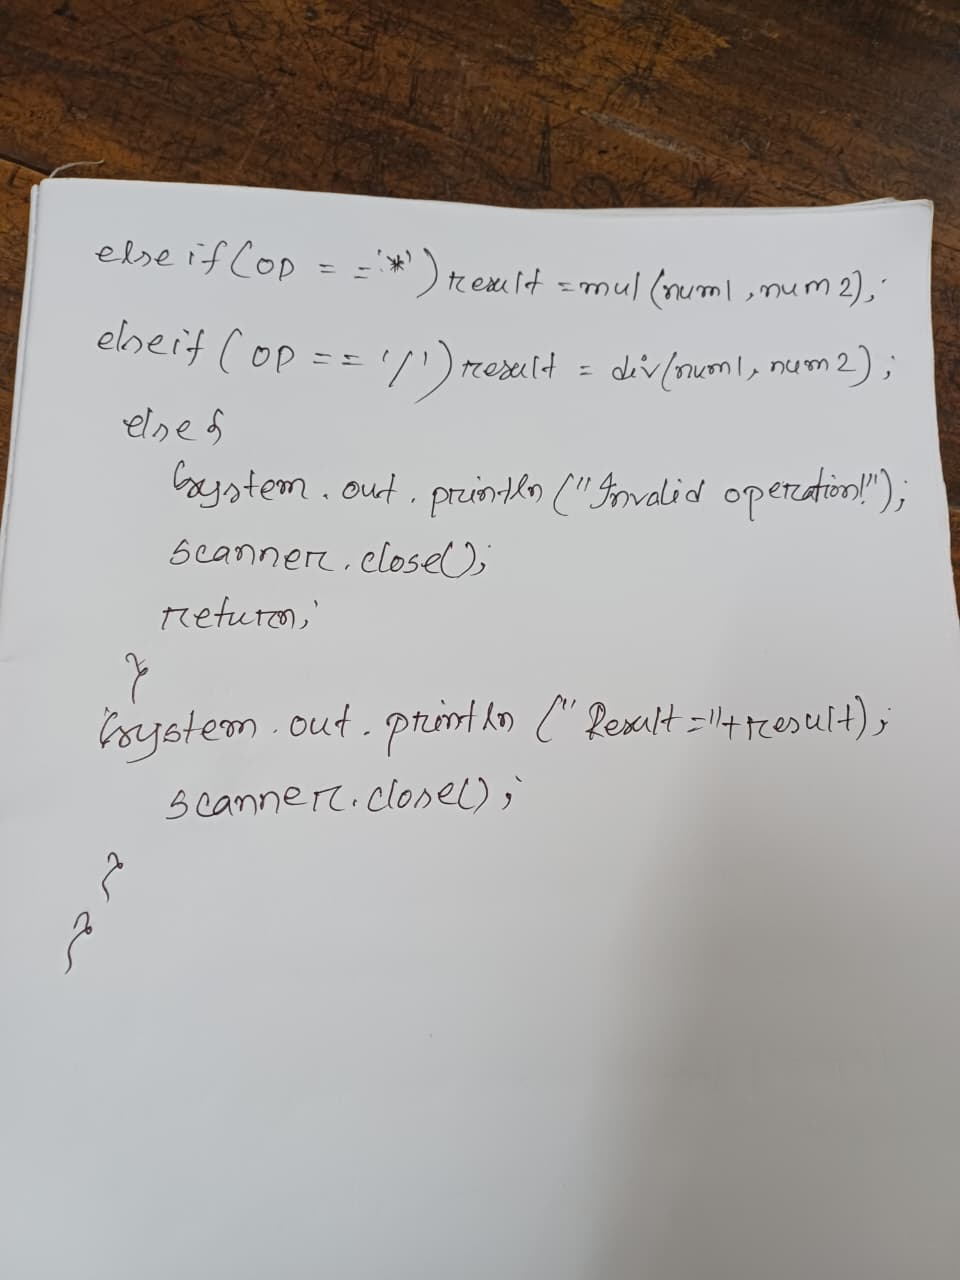 else if (op = = '*') result = mul (num1, num2);
else if (op == '/') result = div (num1, num2);
else {
System.out.println ("Invalid operation!");
scanner.close();
return;
}
System.out.println ("Result="+result);
scanner.close();
}
}